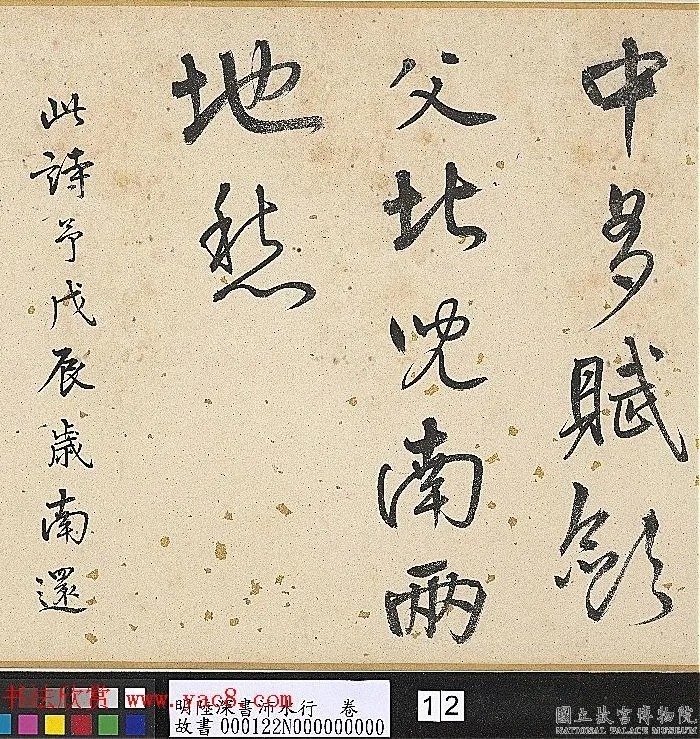 中多賦歛
父北兒南兩
地愁
此詩予戊辰歲南還
书法欣赏 www.yac8.com
明陸深書沛水行 卷
故書 000122N000000000
12
國立故宮博物院
NATIONAL PALACE MUSEUM